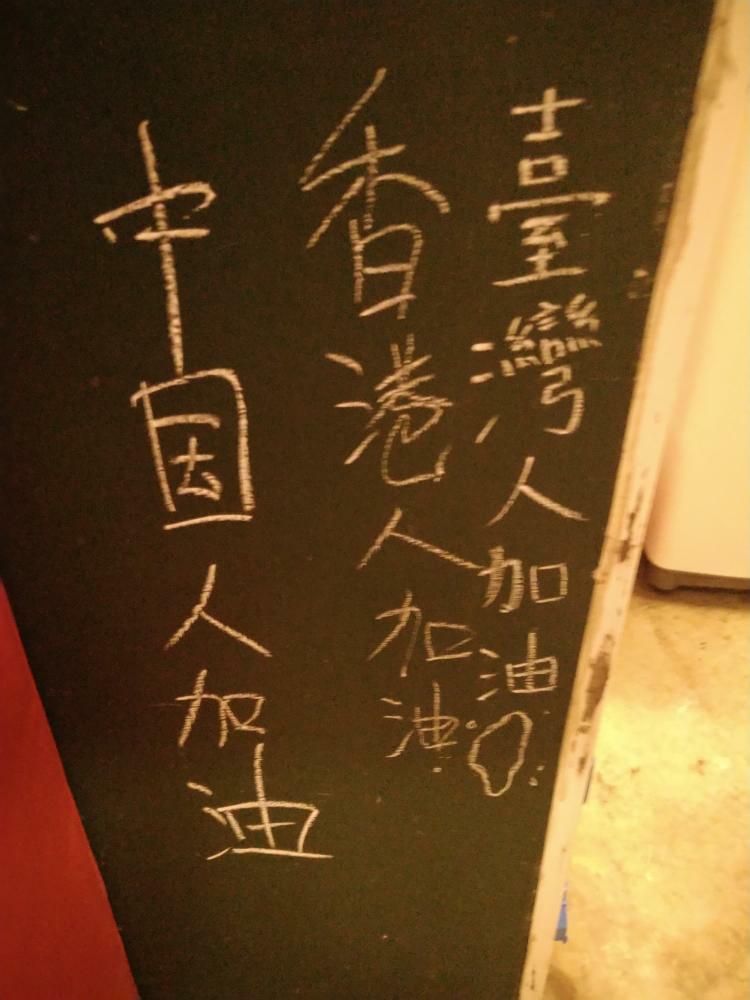 臺灣人加油
香港人加油
中国人加油